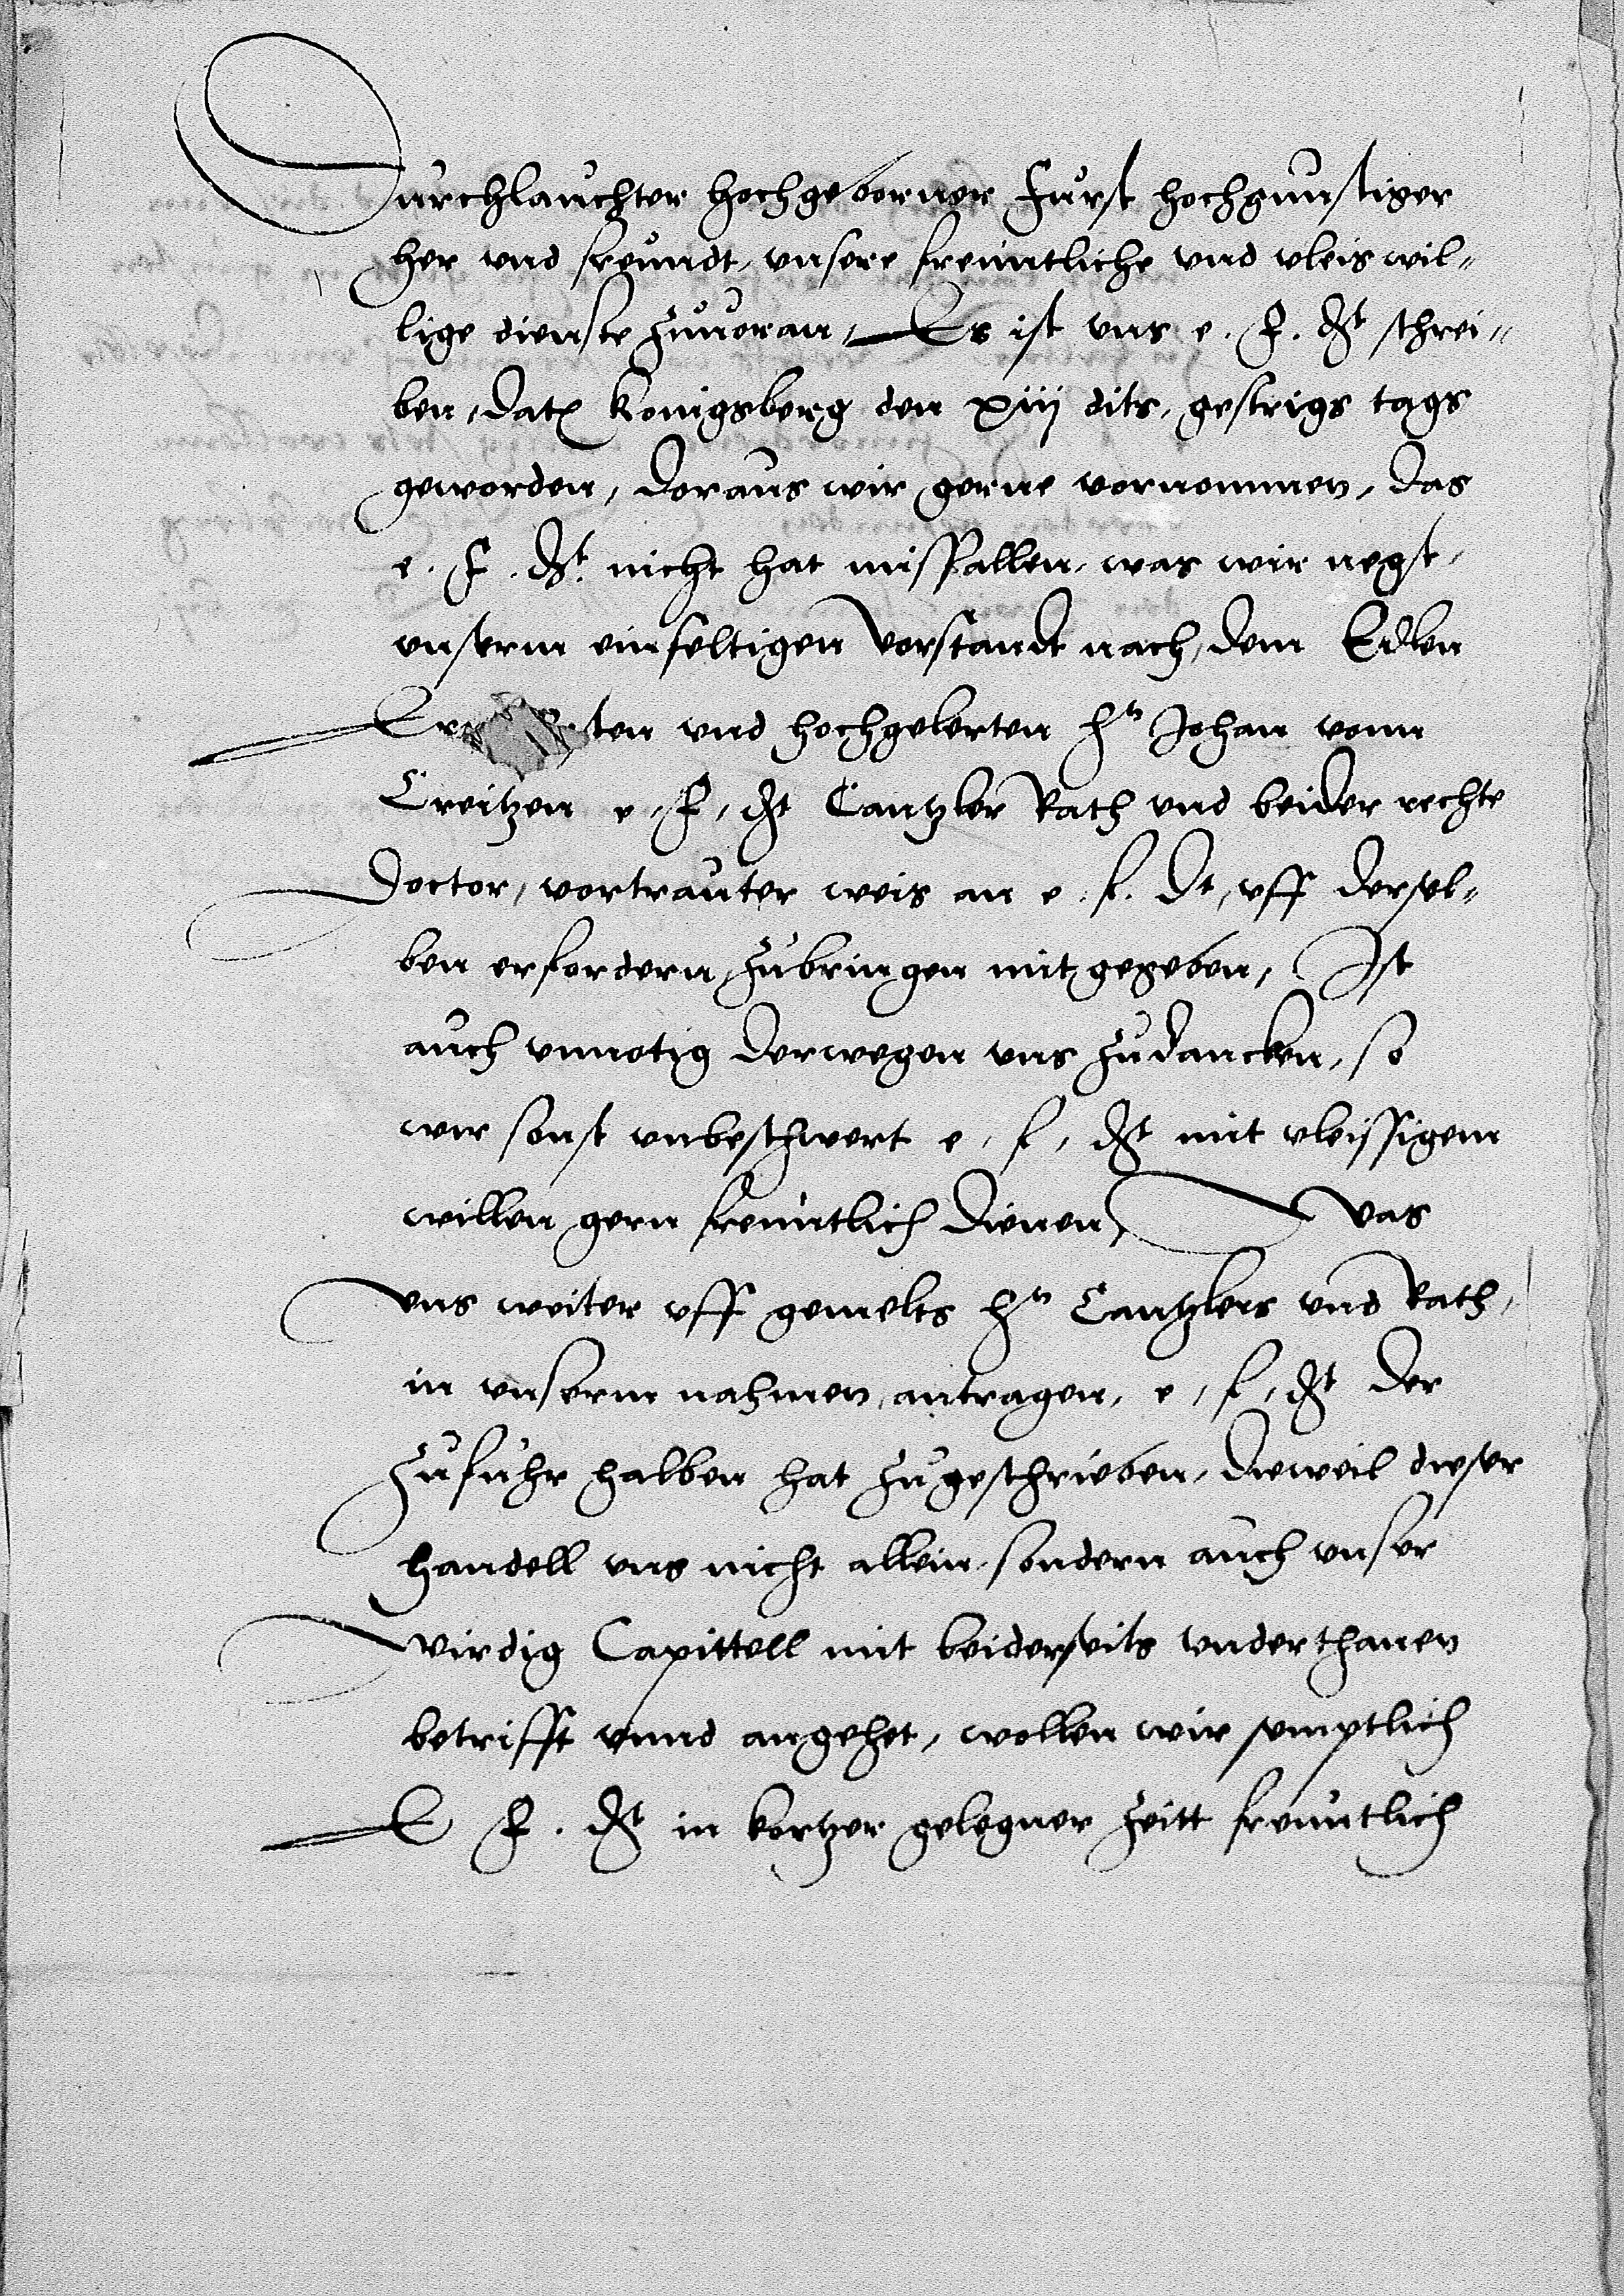 Durchlauchter Hochgeborner Furst hochgunstiger
her vnd freundt, vnsere freuntliche vnd vleis wil-
lige dienste zuuoran, Es ist vns e. F. dt schrei-
ben, dat Konigsberg den xiij dits, gestrigs tags
geworden, doraus wir gerne vornommen, das
e. F. dt. nicht hat misfallen, was wir negst,
vnserm einfeltigen vorstandt nach, dem Edlen
vnd hochgelerten hn Johan vonn
Creitzen e. F. dt Cantzler Rath vnd beider rechte
Doctor, vortrauter weis an e. f. dt, vff dersel-
ben erfordern, zubringen mitgegeben, Ist
auch vnnotig derwegen vns zudancken, so
wir sonst vnbeschwert e. f. dt mit vleissigem
willen gern freuntlich dienen, Was
vns weiter vff gemelts hn Cantzlers vnd Rath,
in vnserm nahmen, antragen, e. f. dt der
Zufuhr halben hat zugeschrieben, dieweil dieser
handell vns nicht allein, sondern auch vnser
wirdig Capittell mit beiderseits vnderthanen
betrifft vnnd angehet, wollen wir semptlich
E F. dt in kortzer gelegner zeitt freuntlich